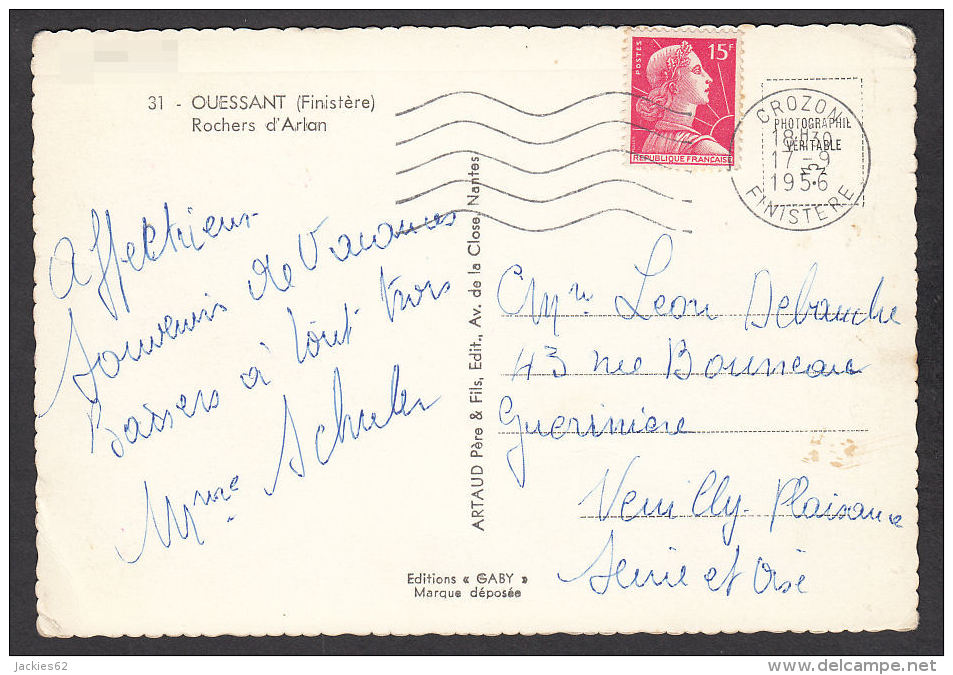 31 - OUESSANT (Finistère)
Rochers d'Arlan
POSTES
15F
REPUBLIQUE FRANÇAISE
CROZON
PHOTOGRAPHIE
VÉRITABLE
18H30
17-9
1956
FINISTERE
Affectueux
Souvenirs de Vacances
Baisers à tout trois
Mme
ARTAUD Père & Fils, Edit., Av. de la Close, Nantes
Mr Leon Debauche
43 rue
Gueriniere
Neuilly-Plaisance
Seine et Oise
Editions « GABY »
Marque déposée
jackies62
www.delcampe.net